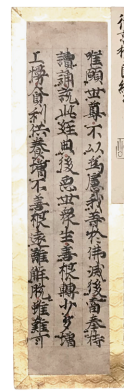 唯願世尊不以為慮我等於佛滅後當奉持
讀誦說此経典後惡世衆生善根轉少多増
上慢貪利供養増不善根遠離解脫雖難可